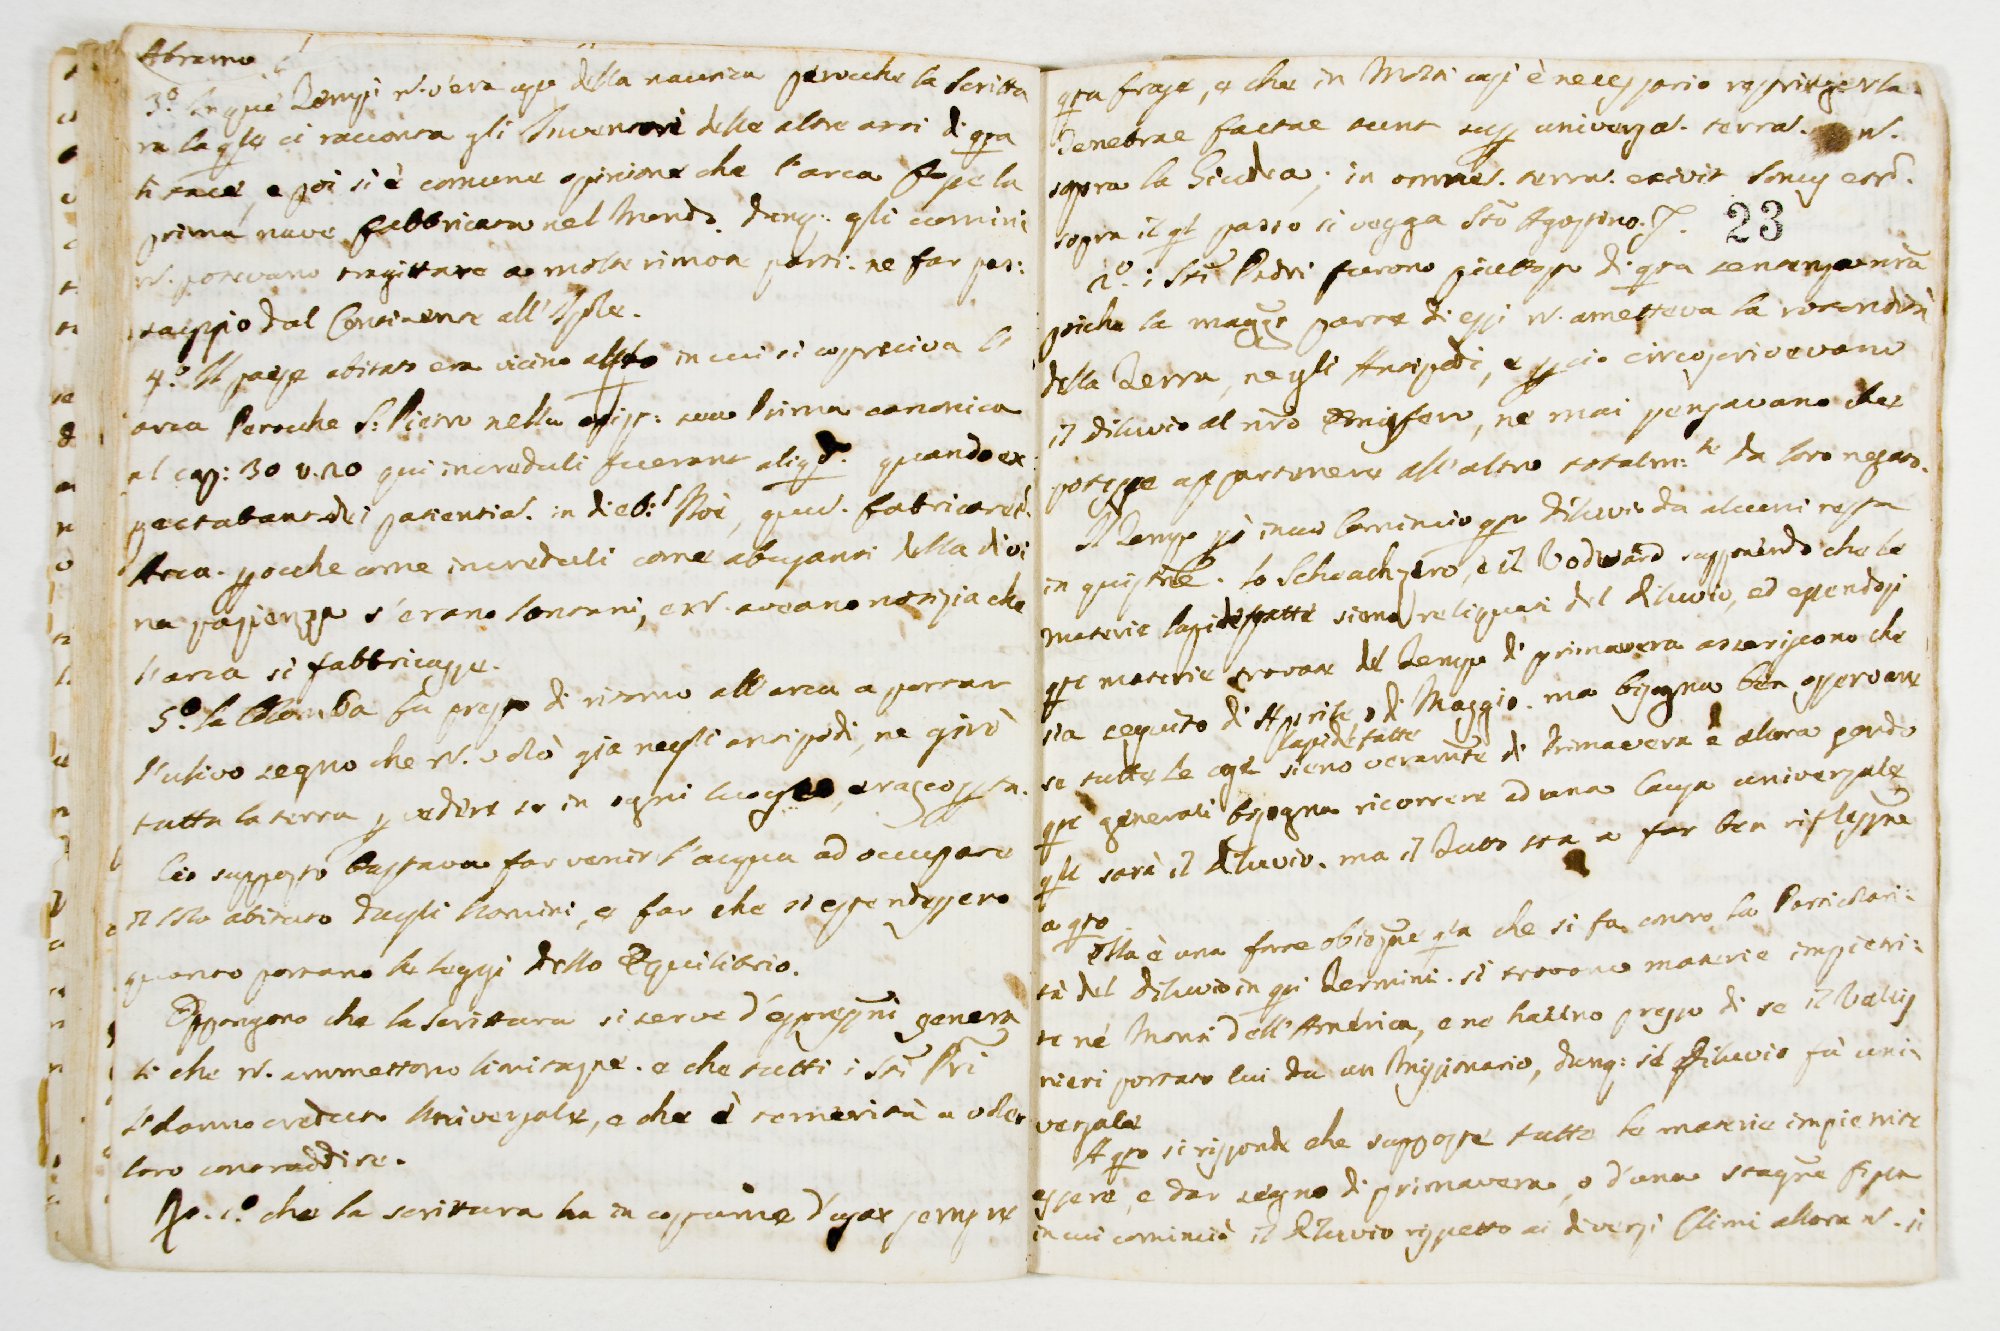 Abramo
3.º In que' Tempi n. v'era arte della nautica perocche la Scrittu
ra la qle ci racconta gli Inventori delle altre arti di qsta
si tace, e poi si è comune opinione che l'arca fu pe la
prima nave fabbricata nel Mondo. dunq: gli uomini
n. potevano tragittare a molte rimote parti. ne far pas:
saggio dal Continente all'Isole.
4.º Il paese abitato era vicino allo in cui si costruiva l'
arca Perocche S: Pietro nella epist: sua Prima canonica
al cap: 30 v. 20 qui increduli fuerant aliqdo. quando ex
pectabant Dei patientia. in dieb: Noè, quu. fabricaret.
Arca. pocche come increduli come abusanti della divi
na pazienza s'erano lontani, e n. aveano notizia che
l'arca si fabbricasse.
5.º la Colomba fu presto di ritorno all'arca a portar
l'ulivo segno che n. volò già negli antipodi, ne girò
tutta la terra p vedere se in ogni luogo era scoperta.
Ciò supposto bastava far venir l'acqua ad occupare
il solo abitato dagli Uomini, e far che si estendessero
quanto portano le leggi dello Equilibrio.
Oppongono che la Scrittura si serve d'espressni genera
li che n. ammettono limitazne. e che tutti i Sti Pri
l'hanno creduto Universale, e che è temerità a voler
loro contraddire.
Rp. 1.º che la scrittura ha in costume d'usar sempre
qsta frase, e che in Molti casi è necessario restringerla
Tenebrae factae sunt sup universa. terra. n.
sopra la Giudea; in omne. terra. exivit sonus eor.
sopra il ql passo si vegga Sto Agostino.
23
2.º i Sti Padri furono piuttosto di qsta sentenza
poiche la maggr parte di essi n. ametteva la rotondità
della Terra, negli Antipodi, e p ciò circoscrivevano
il diluvio al nro Emisfero, ne mai pensavano che
potesse appartenere all'altro totalm:te da loro negato.
Il Tempo poi in cui Cominciò qsto diluvio da alcuni resta
in quistne. lo Scheuchzero, e il Vodward supponendo che le
materie lapidefatte sieno reliquati del diluvio, ed essendosi
qste materie trovate del Tempo di primavera asseriscono che
sia seguito di Aprile, o di Maggio. ma bisogna ben osservare
se tutte le cose lapidefatte sieno veramte di Primavera è allora quando
qste generali bisogna ricorrere ad una Causa universale
qle sarà il diluvio. ma il Tutto sta a far ben riflessne
a qsto
Ella è una forte obiezne qsta che si fa contro la Particolari:
tà del diluvio in qsti Termini. si trovano materie impietri:
te né Monti dell'América, e ne hanno presso di se il Valis
nieri portato lui da un Missionario, dunq: il diluvio fu uni:
versale
A qsto si risponde che supposte tutte le materie impietrite
essere, e dar segno di primavera, o d'una stagne fissa
in cui cominciò il diluvio rispetto ai diversi Climi allora n. si